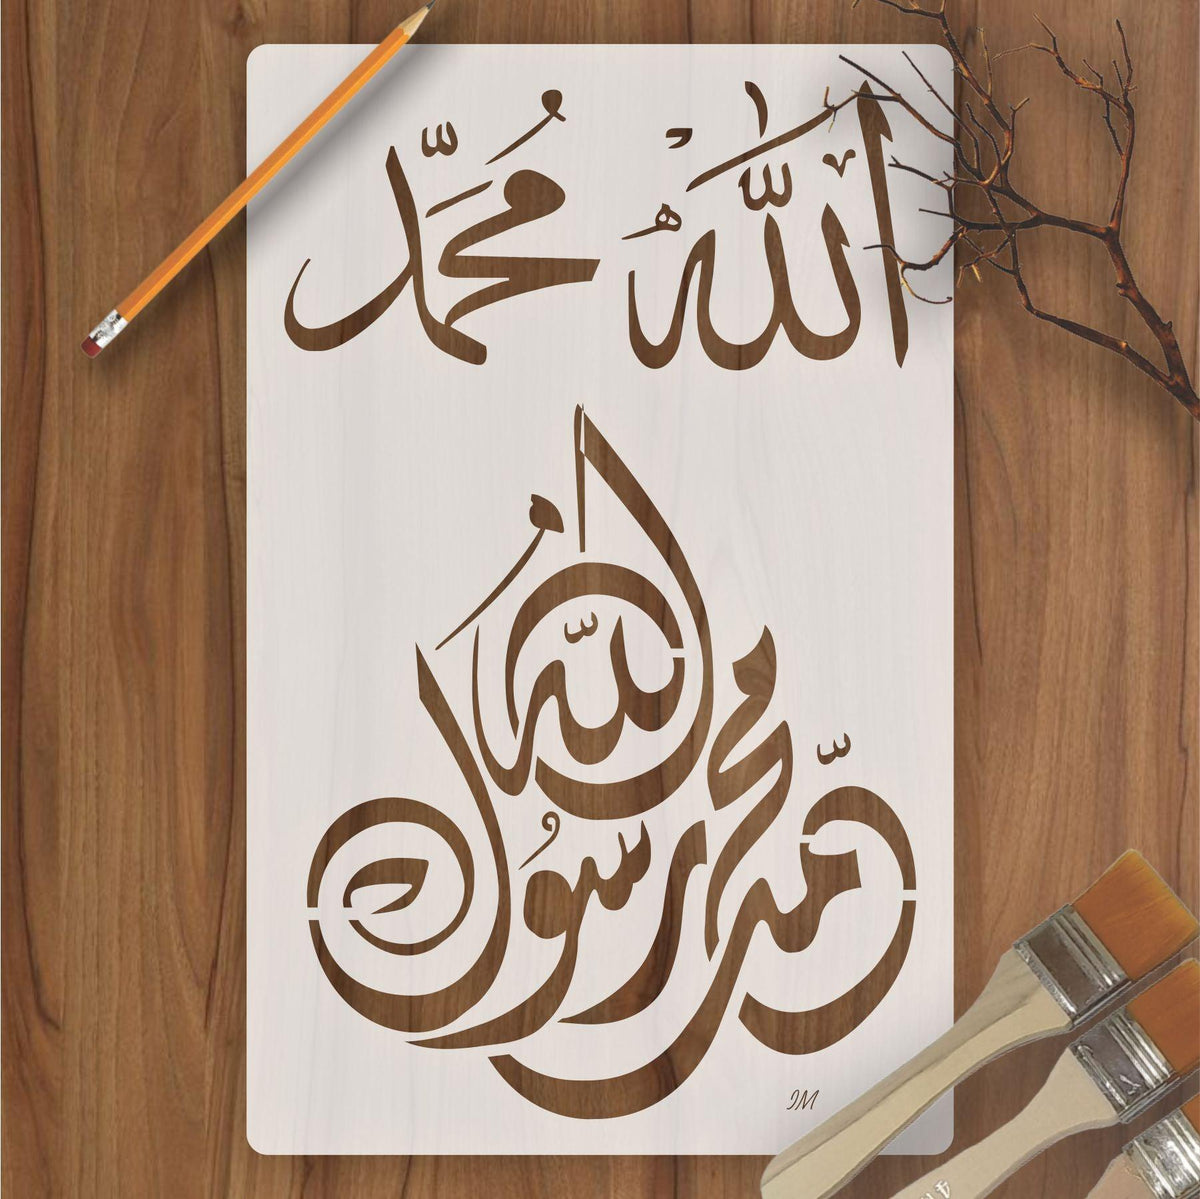 اللّٰهُ مُحَمَّد
محمّد رسُول الله
IM